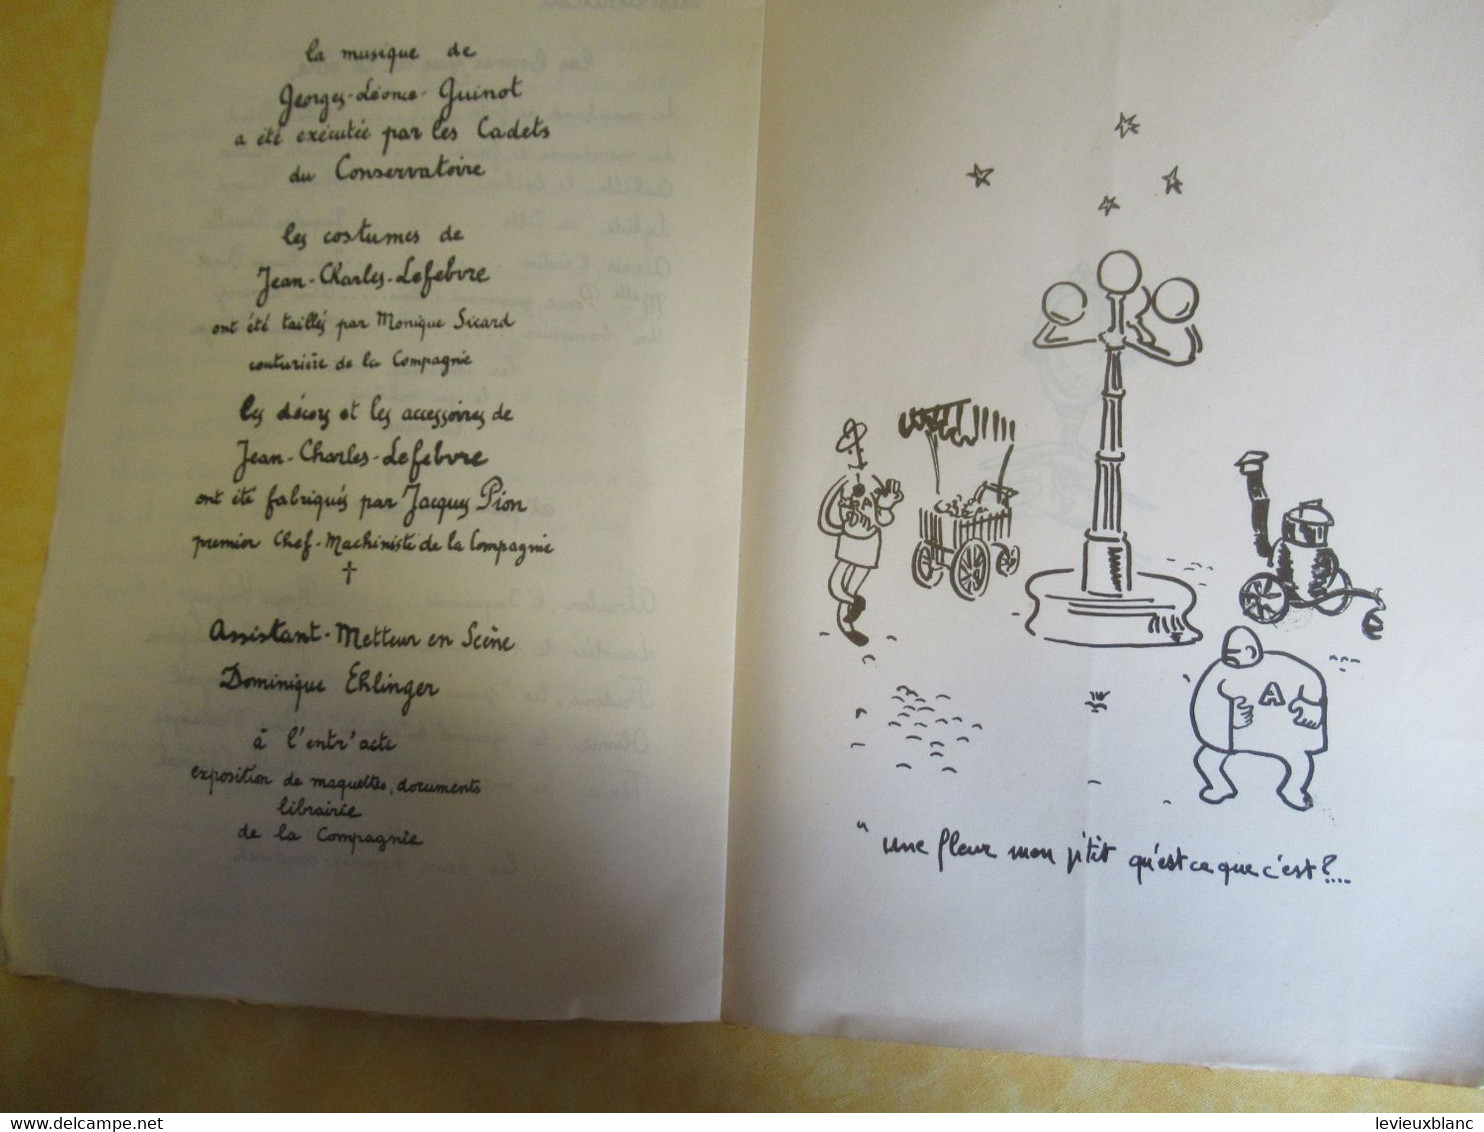 la musique de
Georges-Léonce-Guinot
a été exécutée par les Cadets
du Conservatoire
les costumes de
Jean-Charles-Lefebvre
ont été taillés par Monique Sicard
couturière de la Compagnie
les décors et les accessoires de
Jean-Charles-Lefebvre
ont été fabriqués par Jacques Pion
premier Chef-Machiniste de la Compagnie
†
Assistant-Metteur en Scène
Dominique Ehlinger
à l'entr'acte
exposition de maquettes, documents
librairie
de la Compagnie
A
A
"une fleur mon p'tit qu'est ce que c'est?....
levieuxblanc